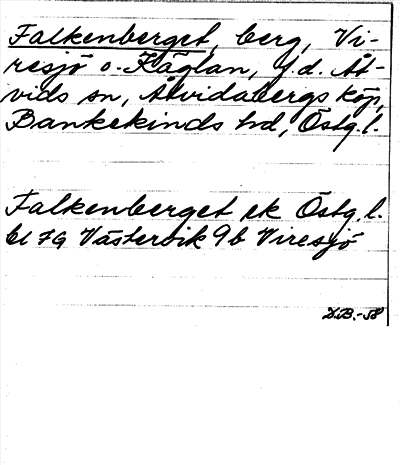 Falkenberget, berg, Vi-
resjö o. Käglan, f.d. Åt-
vids sn, Åtvidabergs köp,
Bankekinds hd, Östg.l.
Falkenberget ek Östg.l.
bl 79 Västervik 9b Viresjö
D.B.-58